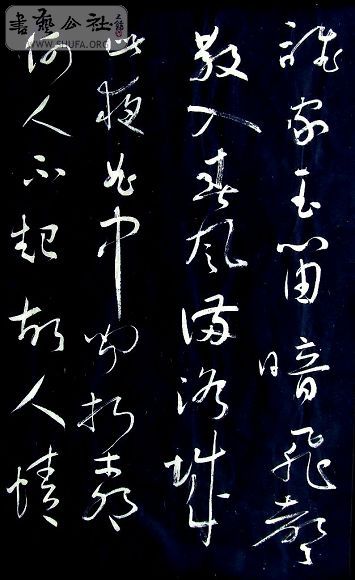 書藝公社
WWW.SHUFA.ORG
誰家玉笛暗飛聲
散入春風滿洛城
此夜曲中聞折柳
何人不起故人情